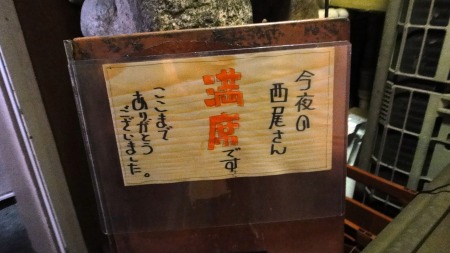 今夜の
西尾さん
満席です
ここまで
ありがとう
ございました。